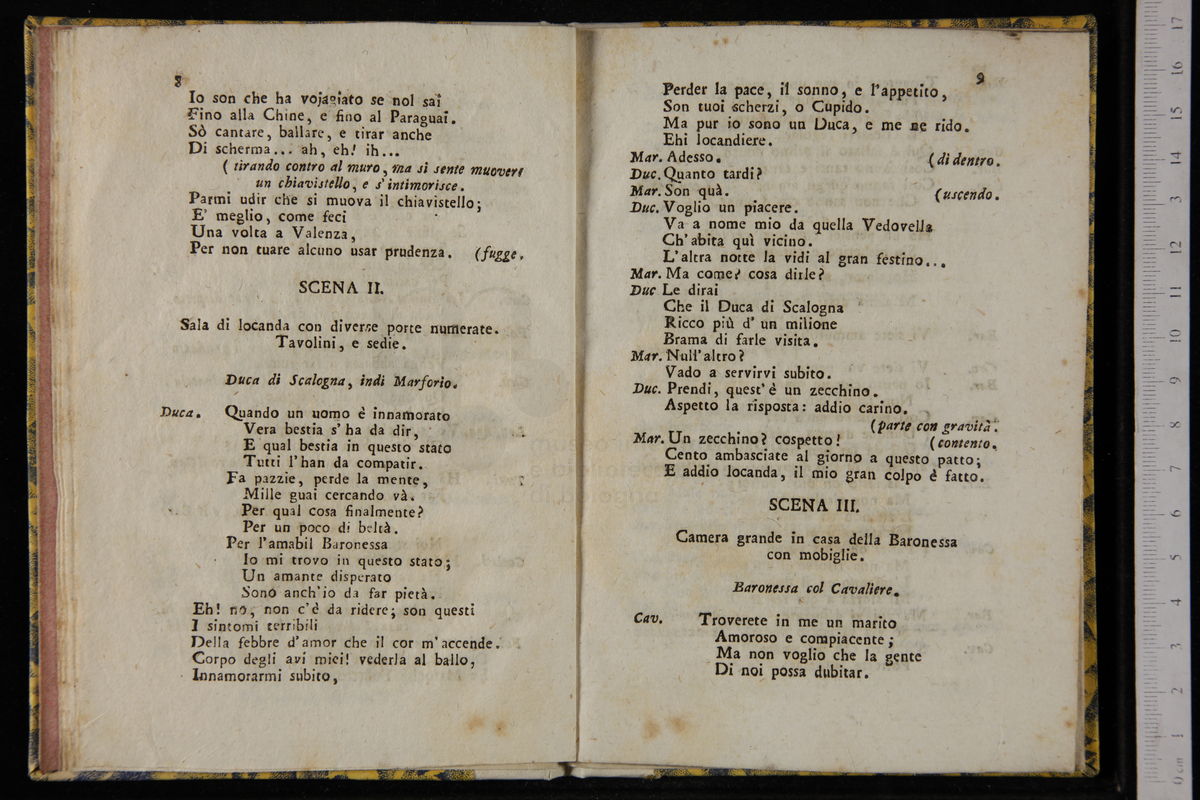 8
Io son che ha vojagiato se nol sai
Fino alla Chine, e fino al Paraguai.
Sò cantare, ballare, e tirar anche
Di scherma... ah, eh! ih...
( tirando contro al muro, ma si sente muovere
un chiavistello, e s'intimorisce.
Parmi udir che si muova il chiavistello;
E' meglio, come feci
Una volta a Valenza,
Per non tuare alcuno usar prudenza. (fugge.
SCENA II.
Sala di locanda con diverse porte numerate.
Tavolini, e sedie.
Duca di Scalogna, indi Marforio.
Duca. Quando un uomo è innamorato
Vera bestia s'ha da dir,
E qual bestia in questo stato
Tutti l'han da compatir.
Fa pazzie, perde la mente,
Mille guai cercando và.
Per qual cosa finalmente?
Per un poco di beltà.
Per l'amabil Baronessa
Io mi trovo in questo stato;
Un amante disperato
Sono anch'io da far pietà.
Eh! no, non c'è da ridere; son questi
I sintomi terribili
Della febbre d'amor che il cor m'accende.
Corpo degli avi miei! vederla al ballo,
Innamorarmi subito,
9
Perder la pace, il sonno, e l'appetito,
Son tuoi scherzi, o Cupido.
Ma pur io sono un Duca, e me ne rido.
Ehi locandiere.
Mar. Adesso. (di dentro.
Duc. Quanto tardi?
Mar. Son quà. (uscendo.
Duc. Voglio un piacere.
Va a nome mio da quella Vedovella
Ch'abita quì vicino.
L'altra notte la vidi al gran festino...
Mar. Ma come? cosa dirle?
Duc Le dirai
Che il Duca di Scalogna
Ricco più d' un milione
Brama di farle visita.
Mar. Null'altro?
Vado a servirvi subito.
Duc. Prendi, quest'è un zecchino.
Aspetto la risposta: addio carino.
(parte con gravità.
Mar. Un zecchino? cospetto! (contento.
Cento ambasciate al giorno a questo patto;
E addio locanda, il mio gran colpo è fatto.
SCENA III.
Camera grande in casa della Baronessa
con mobiglie.
Baronessa col Cavaliere.
Cav. Troverete in me un marito
Amoroso e compiacente;
Ma non voglio che la gente
Di noi possa dubitar.
0 cm 1 2 3 4 5 6 7 8 9 10 11 12 13 14 15 16 17